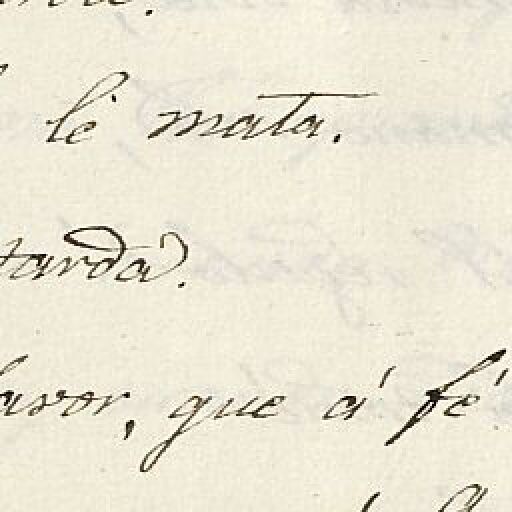 lé mata.
tarda.
favor, que á fé